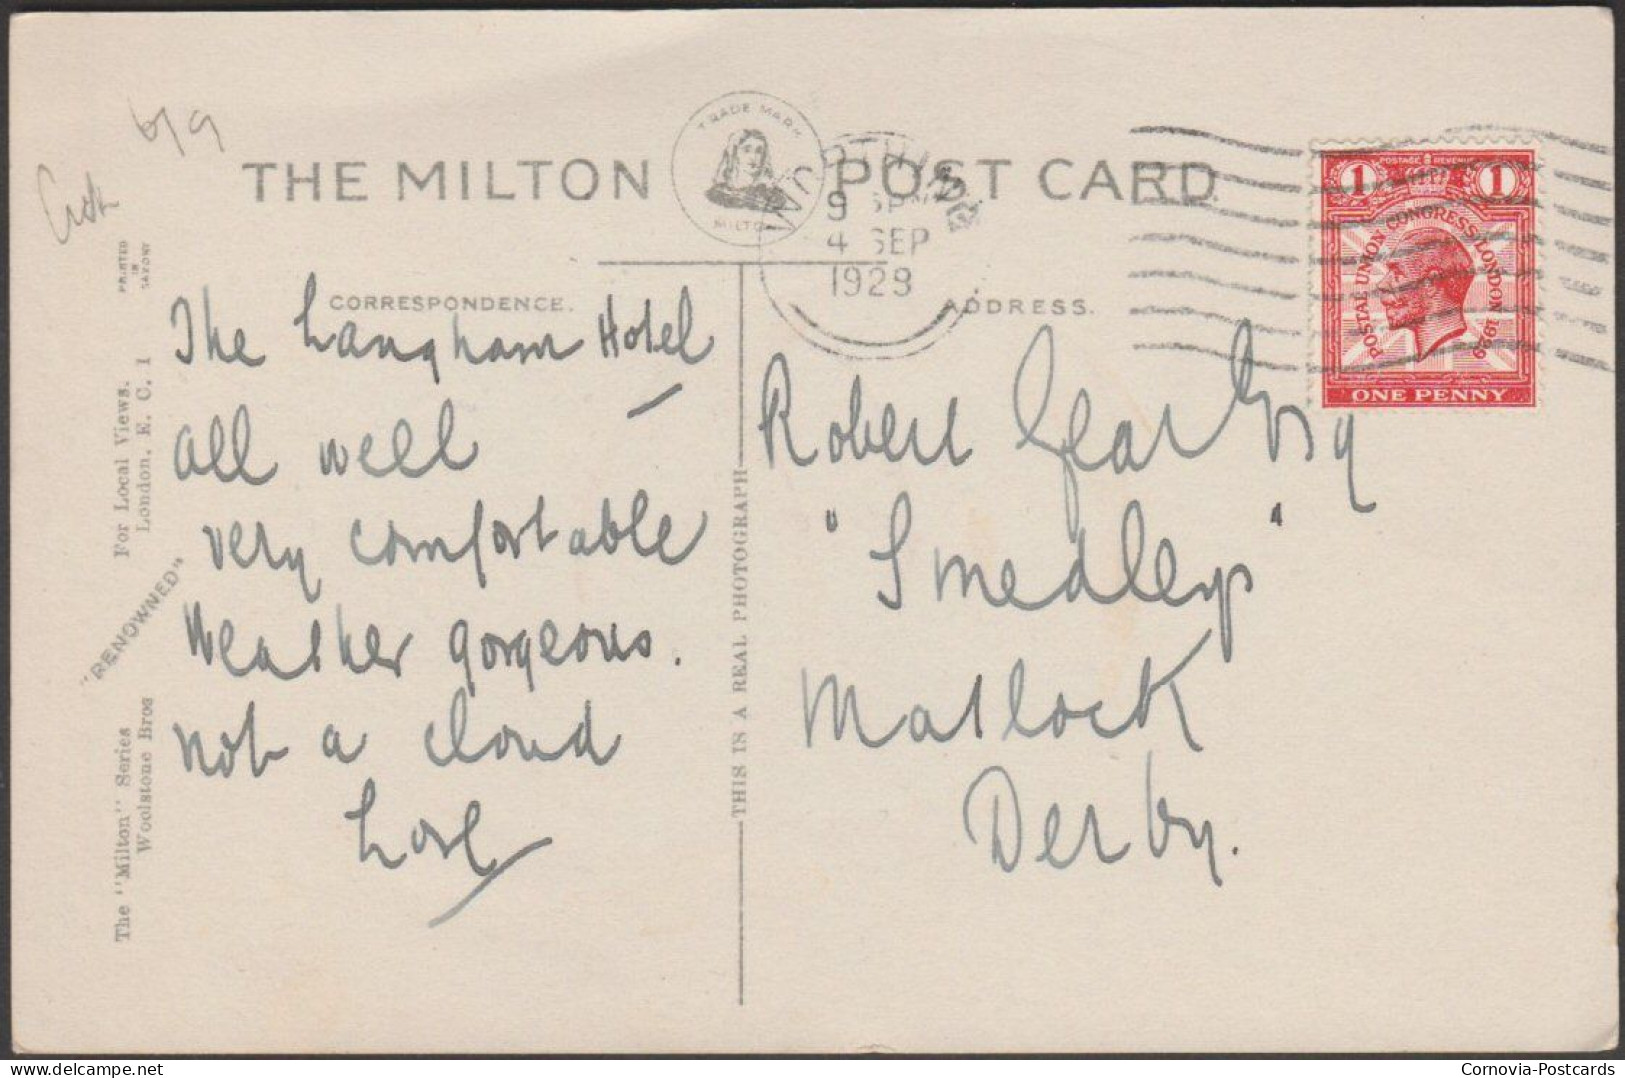 6/9
THE MILTON POST CARD
TRADE MARK
MILTON
WORTHING
9 PM
4 SEP
1929
1 POSTAGE REVENUE 1
POSTAL UNION CONGRESS LONDON 1929
ONE PENNY
PRINTED
IN
SAXONY
CORRESPONDENCE.
ADDRESS.
The Langham Hotel
all well
very comfortable
Weather gorgeous.
not a cloud
Love
Robert Gear Esq
"Smedleys"
Matlock
Derby.
THIS IS A REAL PHOTOGRAPH
The "Milton" Series
Woolstone Bros
"RENOWNED"
For Local Views.
London, E. C. 1
Cornovia-Postcards